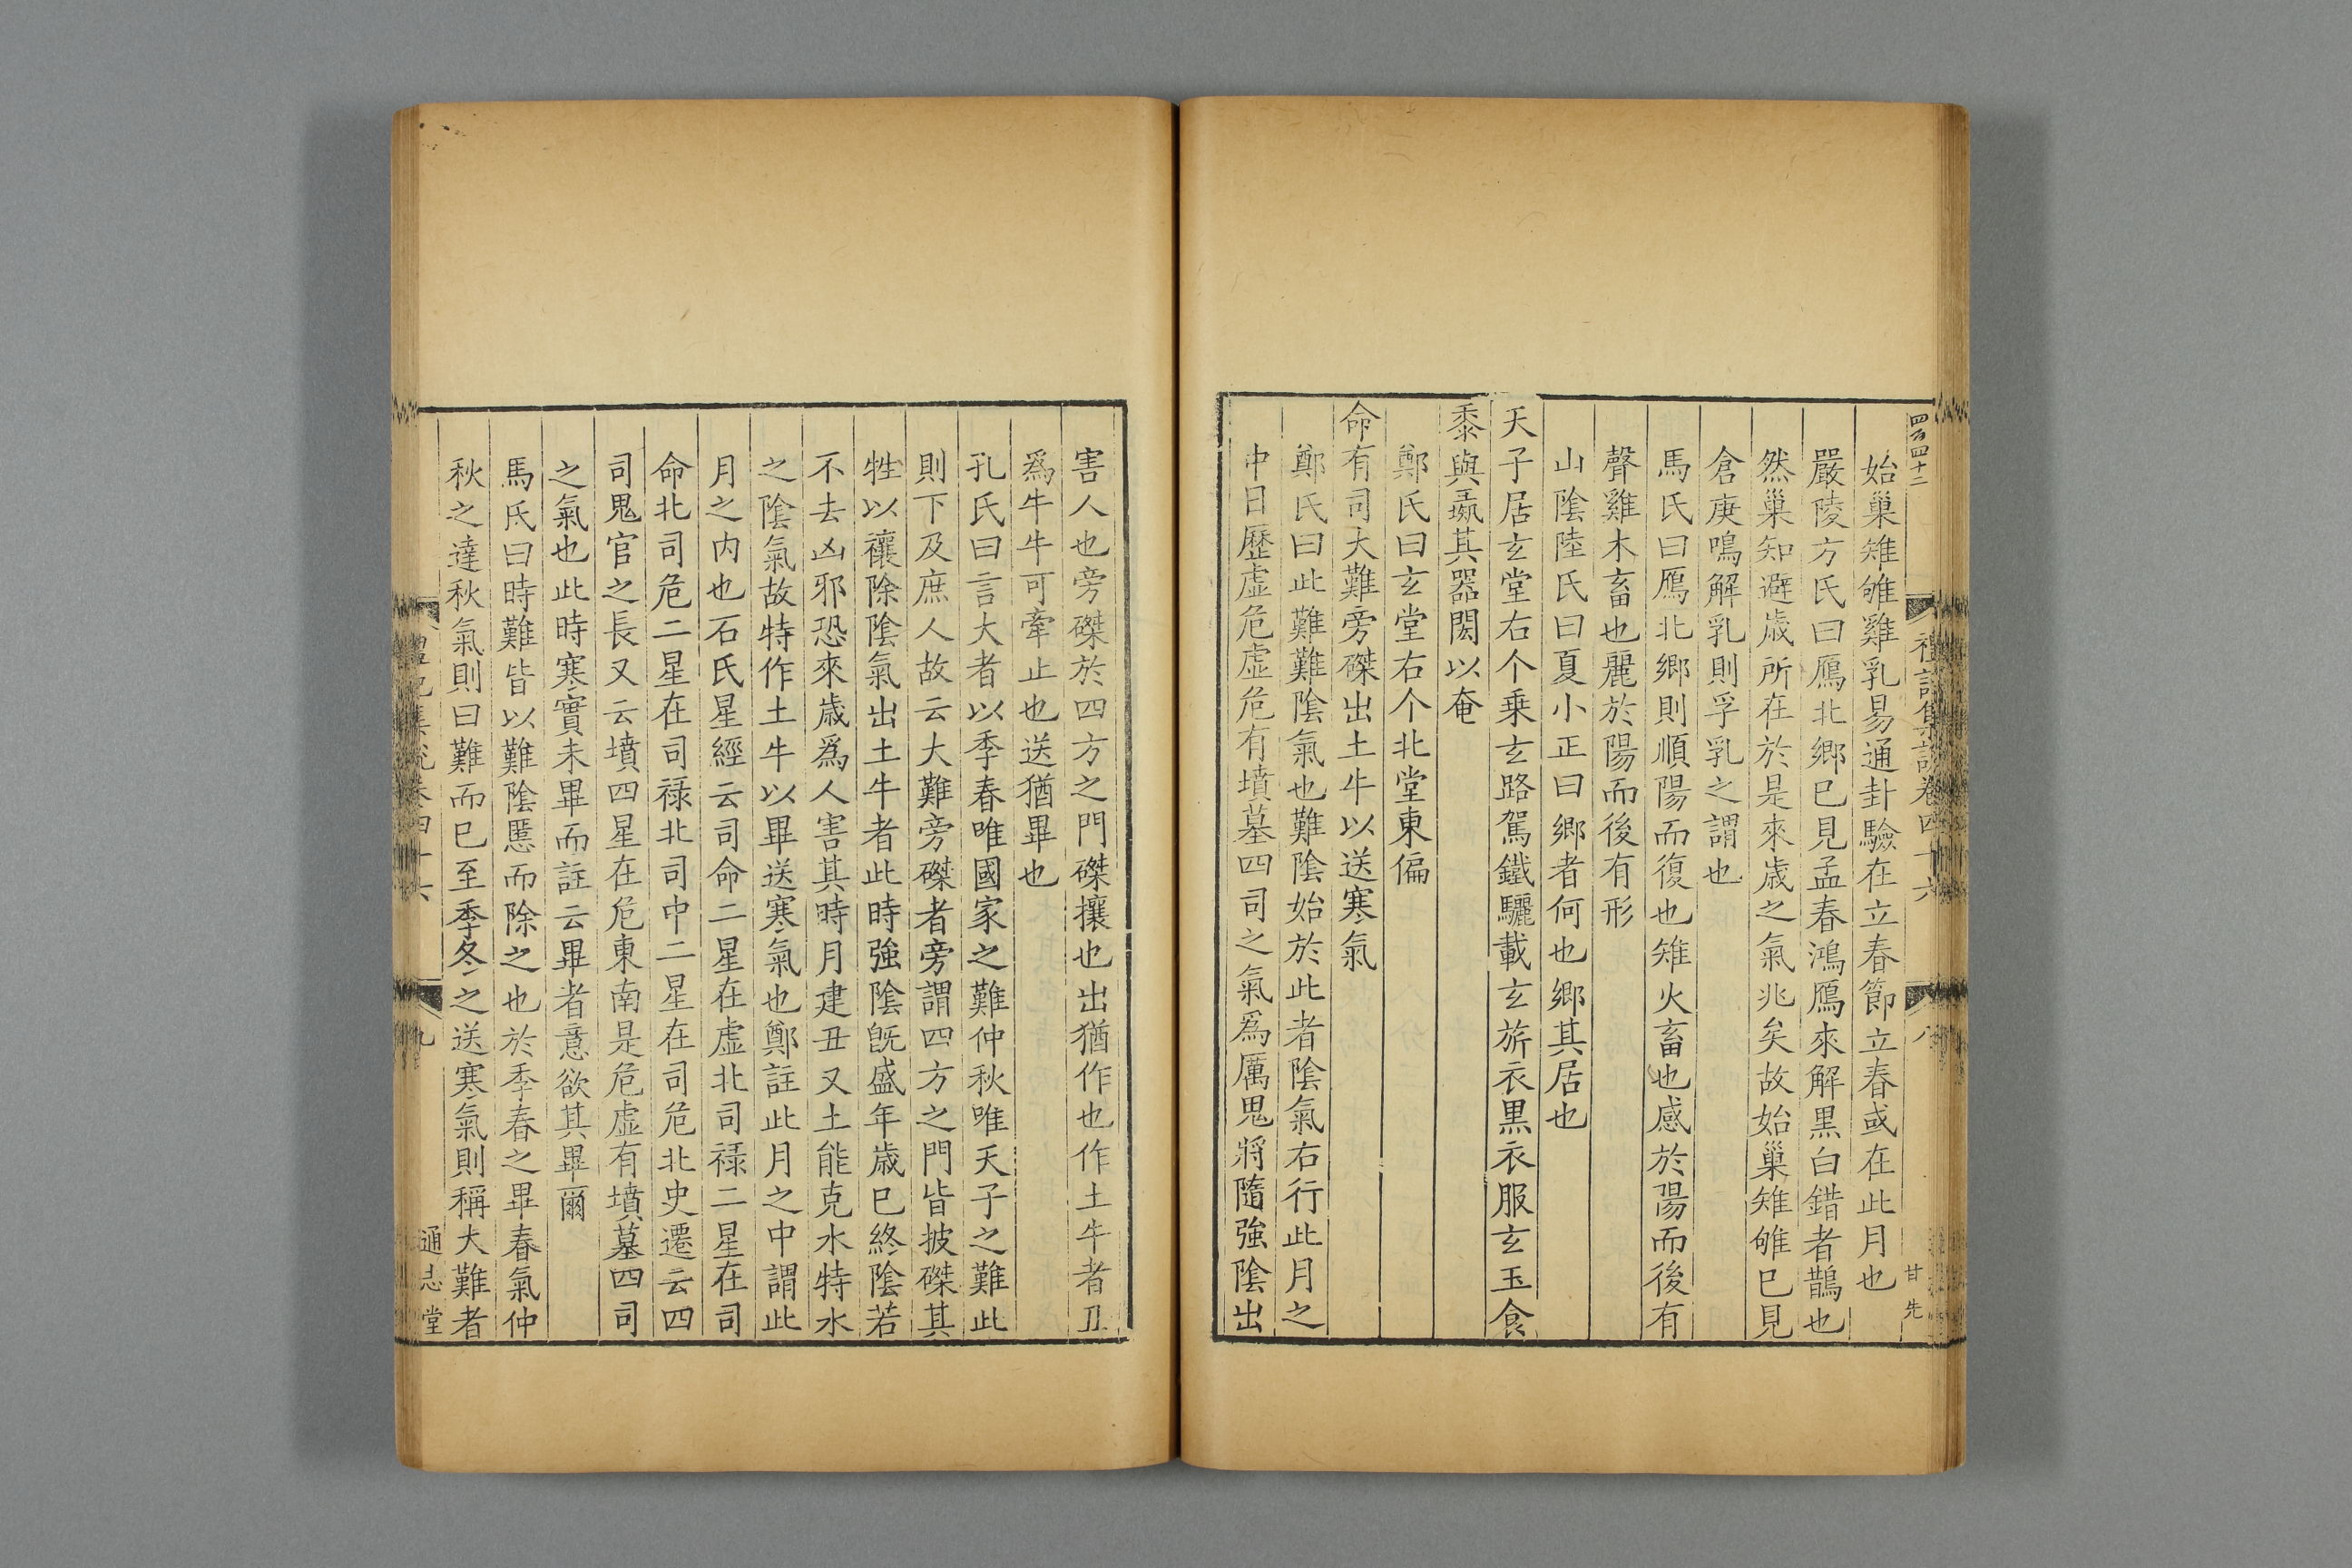 四百四十二
禮記集說卷四十六
八
甘先
始巢雉雊雞乳易通卦驗在立春節立春或在此月也
嚴陵方氏曰鴈北鄉已見孟春鴻鴈來解黑白錯者鵲也
然巢知避歲所在於是來歲之氣兆矣故始巢雉雊已見
倉庚鳴解乳則孚乳之謂也
馬氏曰鴈北鄉則順陽而復也雉火畜也感於陽而後有
聲雞木畜也麗於陽而後有形
山陰陸氏曰夏小正曰鄉者何也鄉其居也
天子居玄堂右个乘玄路駕鐵驪載玄旂衣黑衣服玄玉食
黍與彘其器閎以奄
鄭氏曰玄堂右个北堂東偏
命有司大難旁磔出土牛以送寒氣
鄭氏曰此難難陰氣也難陰始於此者陰氣右行此月之
中日歷虛危虛危有墳墓四司之氣爲厲鬼將隨強陰出
害人也旁磔於四方之門磔攘也出猶作也作土牛者丑
爲牛牛可牽止也送猶畢也
孔氏曰言大者以季春唯國家之難仲秋唯天子之難此
則下及庶人故云大難旁磔者旁謂四方之門皆披磔其
牲以禳除陰氣出土牛者此時強陰旣盛年歲已終陰若
不去凶邪恐來歲爲人害其時月建丑又土能克水特水
之陰氣故特作土牛以畢送寒氣也鄭註此月之中謂此
月之内也石氏星經云司命二星在虛北司祿二星在司
命北司危二星在司祿北司中二星在司危北史遷云四
司鬼官之長又云墳四星在危東南是危虛有墳墓四司
之氣也此時寒實未畢而註云畢者意欲其畢爾
馬氏曰時難皆以難陰慝而除之也於季春之畢春氣仲
秋之達秋氣則曰難而已至季冬之送寒氣則稱大難者
禮記集說卷四十六
九
通志堂